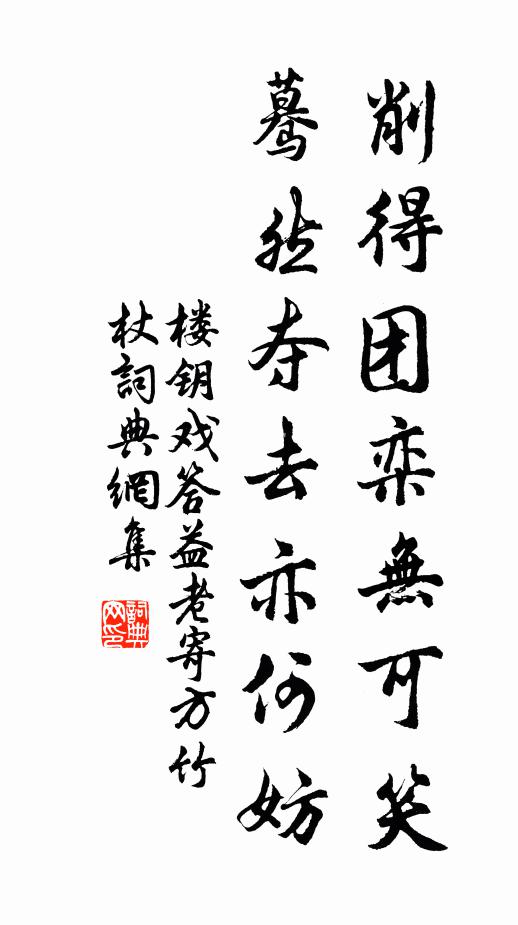 削得团栾無可笑
蓦然夺去亦何妨
楼钥戏答益老寄方竹
杖詞典網集
詞典網印